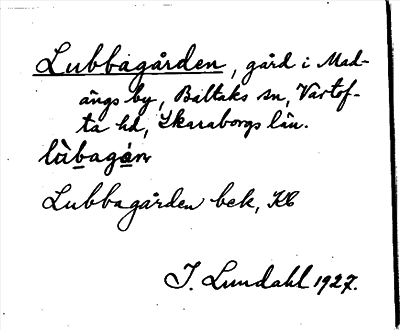 Lubbagården, gård i Mad-
ängs by, Baltaks sn, Vartof-
ta hd, Skaraborgs län.
lùbagán
Lubbagården bek, KB
I. Lundahl 1927.